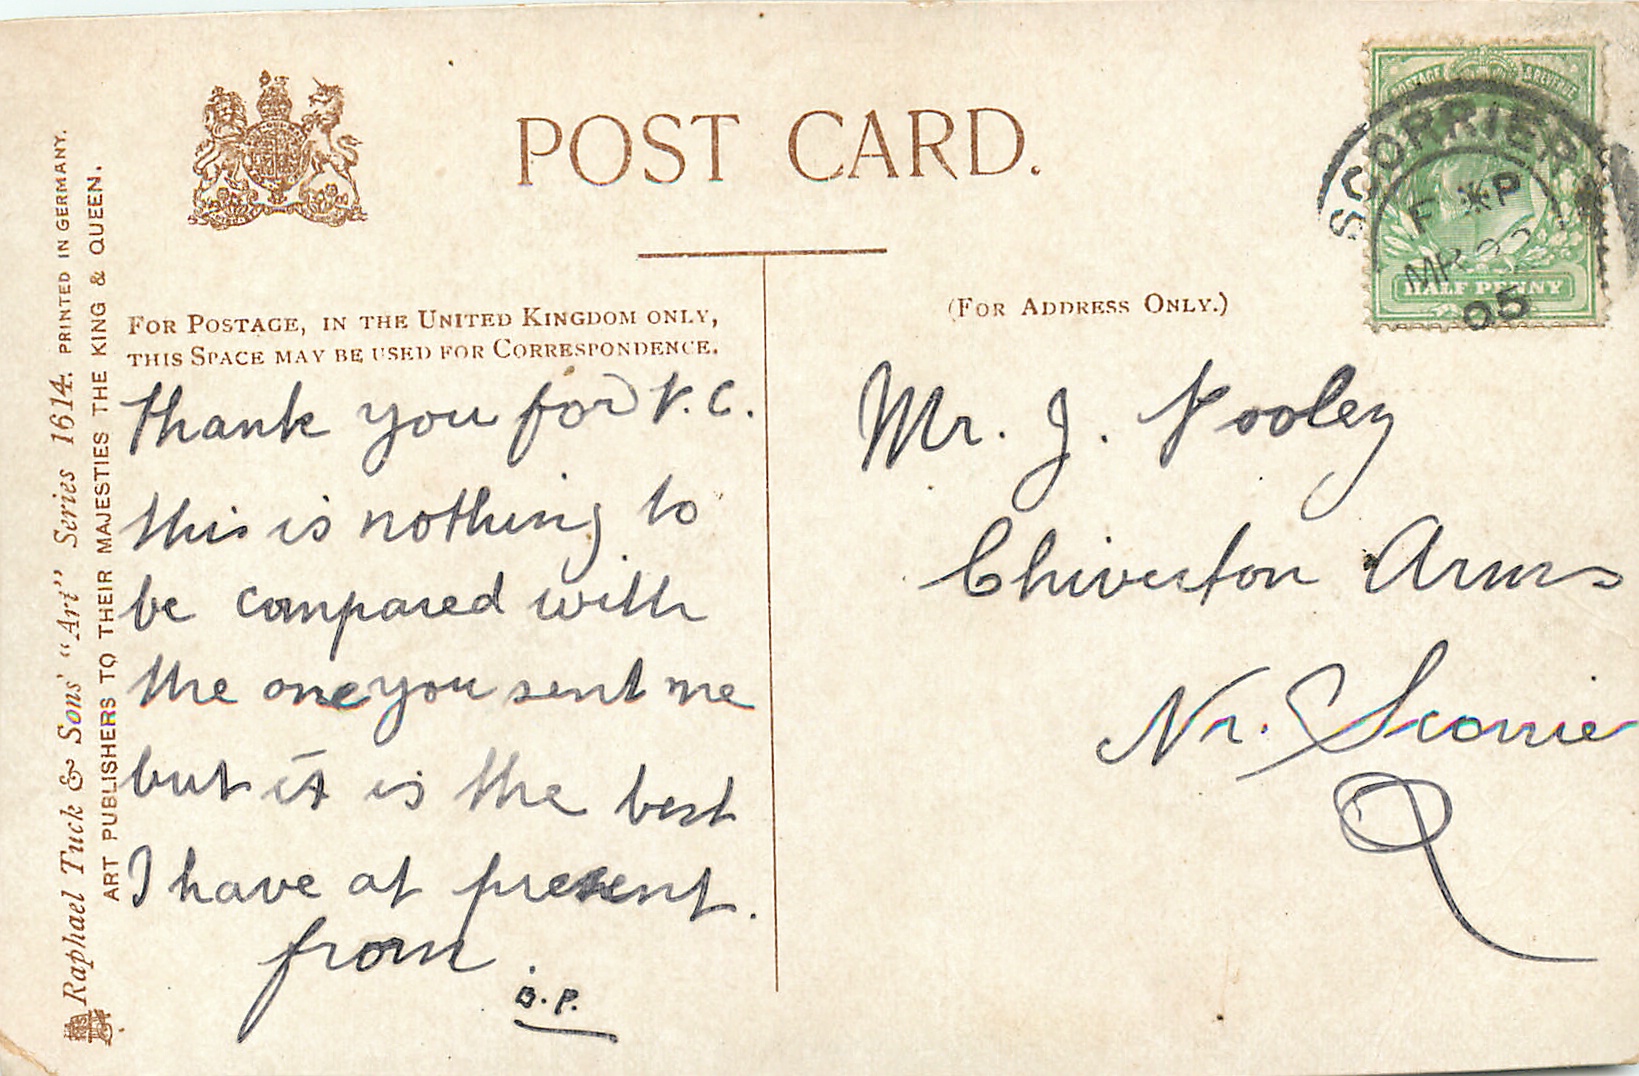 POST CARD.
FOR POSTAGE, IN THE UNITED KINGDOM ONLY,
THIS SPACE MAY BE USED FOR CORRESPONDENCE.
(FOR ADDRESS ONLY.)
Thank you for P.C.
this is nothing to
be compared with
the one you sent me
but it is the best
I have at present.
from.
B.P.
Mr. J. Pooley
Chiverton Arms
Nr. Scorrier
POSTAGE & REVENUE
HALF PENNY
SCORRIER
MR 05
Raphael Tuck & Sons' "Art" Series 1614. PRINTED IN GERMANY.
ART PUBLISHERS TO THEIR MAJESTIES THE KING & QUEEN.